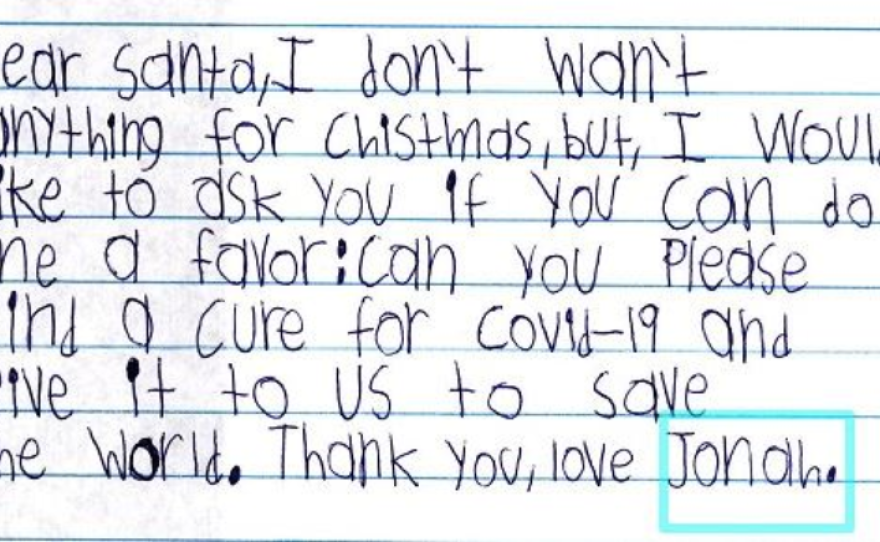 ear Santa, I don't wan't
nything for Chistmas, but, I Woul
ke to ask you if you can do
e a favor: can you Please
ind a cure for Covid-19 and
ive it to US to save
he World. Thank you, love Jonah.